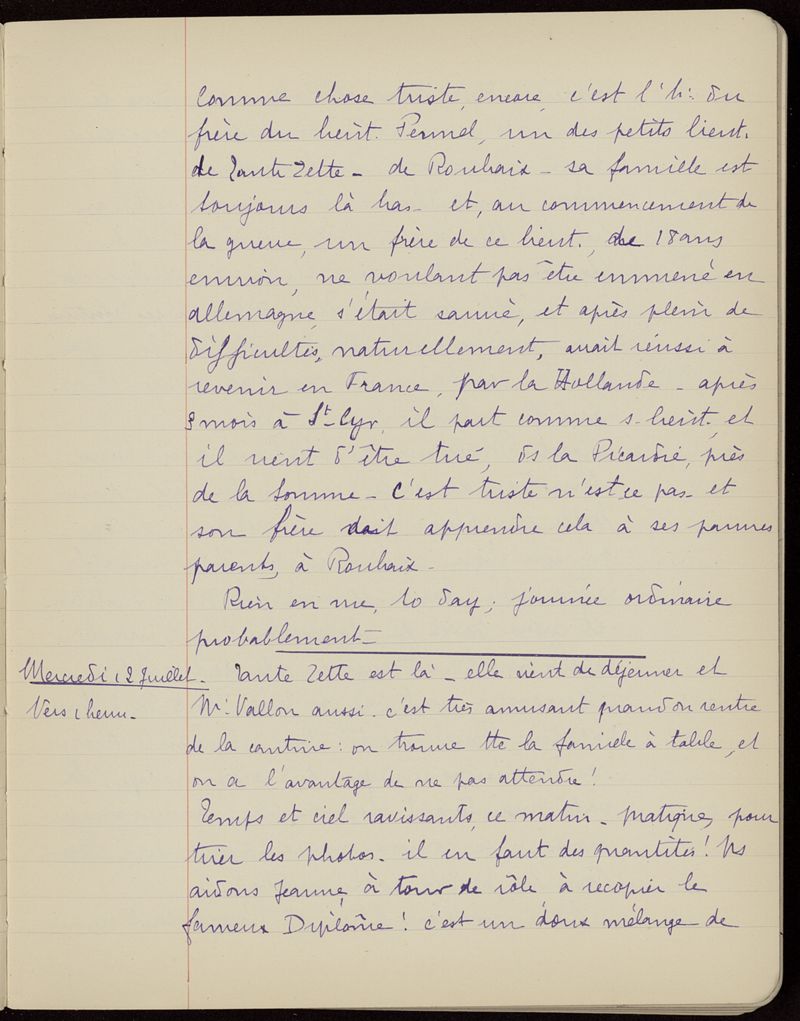 Comme chose triste, encore, c'est l'h: du
frère du lieut. Permel, un des petits lieut.
de Tante Zette - de Roubaix - sa famille est
toujours là bas - et, au commencement de
la guerre, un frère de ce lieut., de 18 ans
environ, ne voulant pas être emmené en
allemagne, s'était sauvé, et après plein de
difficultés, naturellement, avait réussi à
revenir en France, par la Hollande - après
3 mois à St-Cyr, il part comme s-lieut, et
il vient d'être tué, ds la Picardie, près
de la Somme - C'est triste n'est ce pas - et
son frère doit apprendre cela à ses pauvres
parents, à Roubaix -
Rien en vue, to day; journée ordinaire
probablement -
Mercredi 12 Juillet. Tante Zette est là - elle vient de déjeuner et
Vers 1 heure - Mr. Vallon aussi. c'est très amusant quand on rentre
de la cantine: on trouve tte la famille à table, et
on a l'avantage de ne pas attendre!
Temps et ciel ravissants, ce matin - pratique, pour
trier les photos - il en faut des quantités! Ns
aidons Jeanne, à tour de rôle à recopier le
fameux Diplôme! c'est un doux mélange de